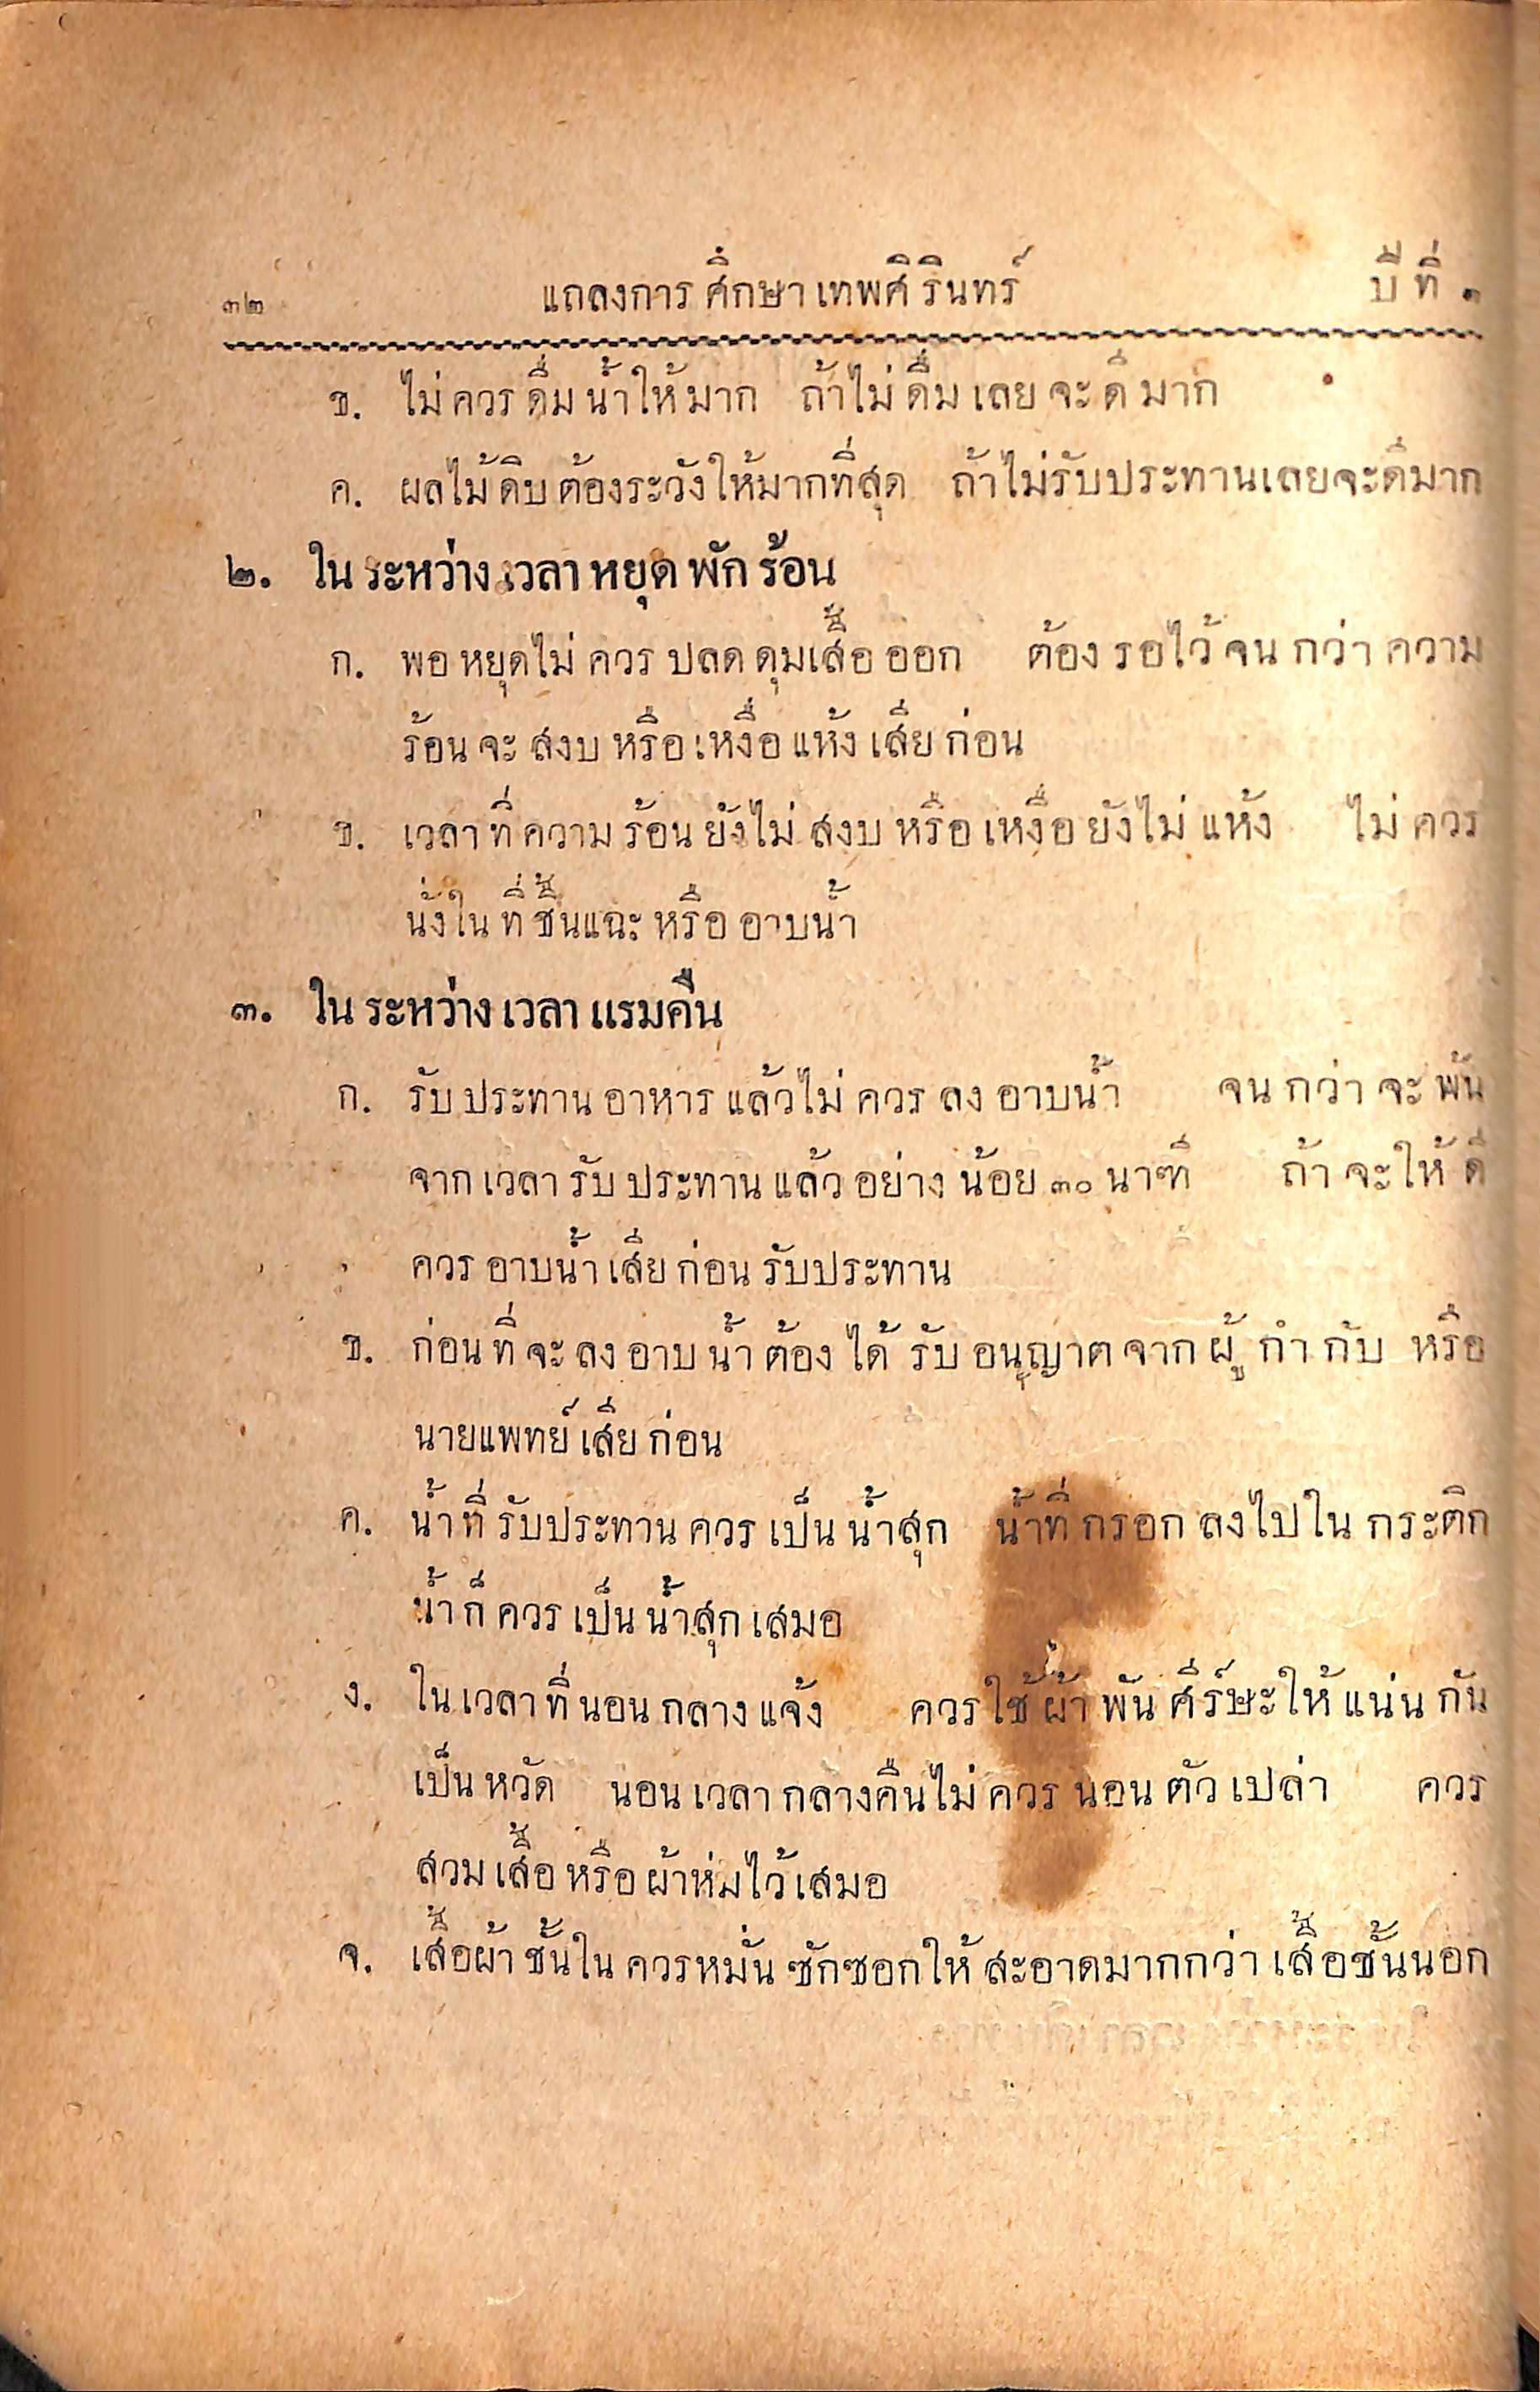 ๓๒ แถลงการศึกษาเทพศิรินทร์ ปีที่ ๑
ข. ไม่ควรดื่มน้ำให้มาก ถ้าไม่ดื่มเลยจะดีมาก
ค. ผลไม้ดิบต้องระวังให้มากที่สุด ถ้าไม่รับประทานเลยจะดีมาก
๒. ในระหว่างเวลาหยุดพักร้อน
ก. พอหยุดไม่ควรปลดดุมเสื้อออก ต้องรอไว้จนกว่าความ
ร้อนจะสงบหรือเหงื่อแห้งเสียก่อน
ข. เวลาที่ความร้อนยังไม่สงบหรือเหงื่อยังไม่แห้ง ไม่ควร
นั่งในที่ชื้นแฉะหรืออาบน้ำ
๓. ในระหว่างเวลาแรมคืน
ก. รับประทานอาหารแล้วไม่ควรลงอาบน้ำ จนกว่าจะพ้น
จากเวลารับประทานแล้วอย่างน้อย ๓๐ นาฑี ถ้าจะให้ดี
ควรอาบน้ำเสียก่อนรับประทาน
ข. ก่อนที่จะลงอาบน้ำต้องได้รับอนุญาตจากผู้กำกับ หรือ
นายแพทย์เสียก่อน
ค. น้ำที่รับประทานควรเป็นน้ำสุก น้ำที่กรอกลงไปในกระติก
น้ำก็ควรเป็นน้ำสุกเสมอ
ง. ในเวลาที่นอนกลางแจ้ง ควรใช้ผ้าพันศีร์ษะให้แน่นกัน
เป็นหวัด นอนเวลากลางคืนไม่ควรนอนตัวเปล่า ควร
สวมเสื้อหรือผ้าห่มไว้เสมอ
จ. เสื้อผ้าชั้นในควรหมั่นซักซอกให้สะอาดมากกว่าเสื้อชั้นนอก